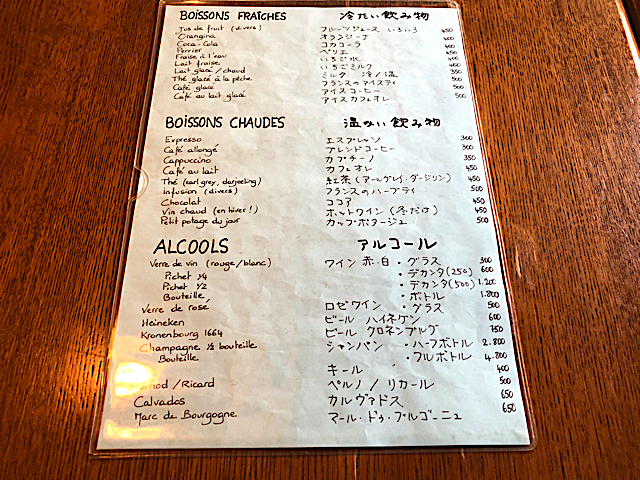 BOISSONS FRAÎCHES 冷たい飲み物
Jus de fruit (divers) フルーツジュース いろいろ 450
Orangina オランジーナ 400
Coca-Cola コカコーラ 400
Perrier ペリエ 400
Fraise à l'eau いちご水 400
Lait fraise いちごミルク 400
Lait glacé / chaud ミルク 冷/温 350
Thé glacé à la pêche フランスのアイスティ 500
Café glacé アイスコーヒー 500
Café au lait glacé アイスカフェオレ 500
BOISSONS CHAUDES 温かい飲み物
Expresso エスプレッソ 300
Café allongé ブレンドコーヒー 300
Cappuccino カプチーノ 350
Café au lait カフェオレ 450
Thé (earl grey, darjeeling) 紅茶(アールグレイ・ダージリン) 450
Infusion (divers) フランスのハーブティ 500
Chocolat ココア 450
Vin chaud (en hiver!) ホットワイン(冬だけ) 450
Petit potage du jour カップ・ポタージュ 500
ALCOOLS アルコール
Verre de vin (rouge/blanc) ワイン 赤・白 ・グラス 300
Pichet 1/4 ・デカンタ(250) 600
Pichet 1/2 ・デカンタ(500) 1.200
Bouteille ・ボトル 1.800
Verre de rosé ロゼワイン ・グラス 500
Heineken ビール ハイネゲン 600
Kronenbourg 1664 ビール クロネンブルグ 750
Champagne 1/2 bouteille シャンパン ・ハーフボトル 2.800
Bouteille ・フルボトル 4.800
キール 400
/Ricard ペルノ / リカール 500
Calvados カルヴァドス 650
Marc de Bourgogne マール・ドゥ・ブルゴーニュ 650